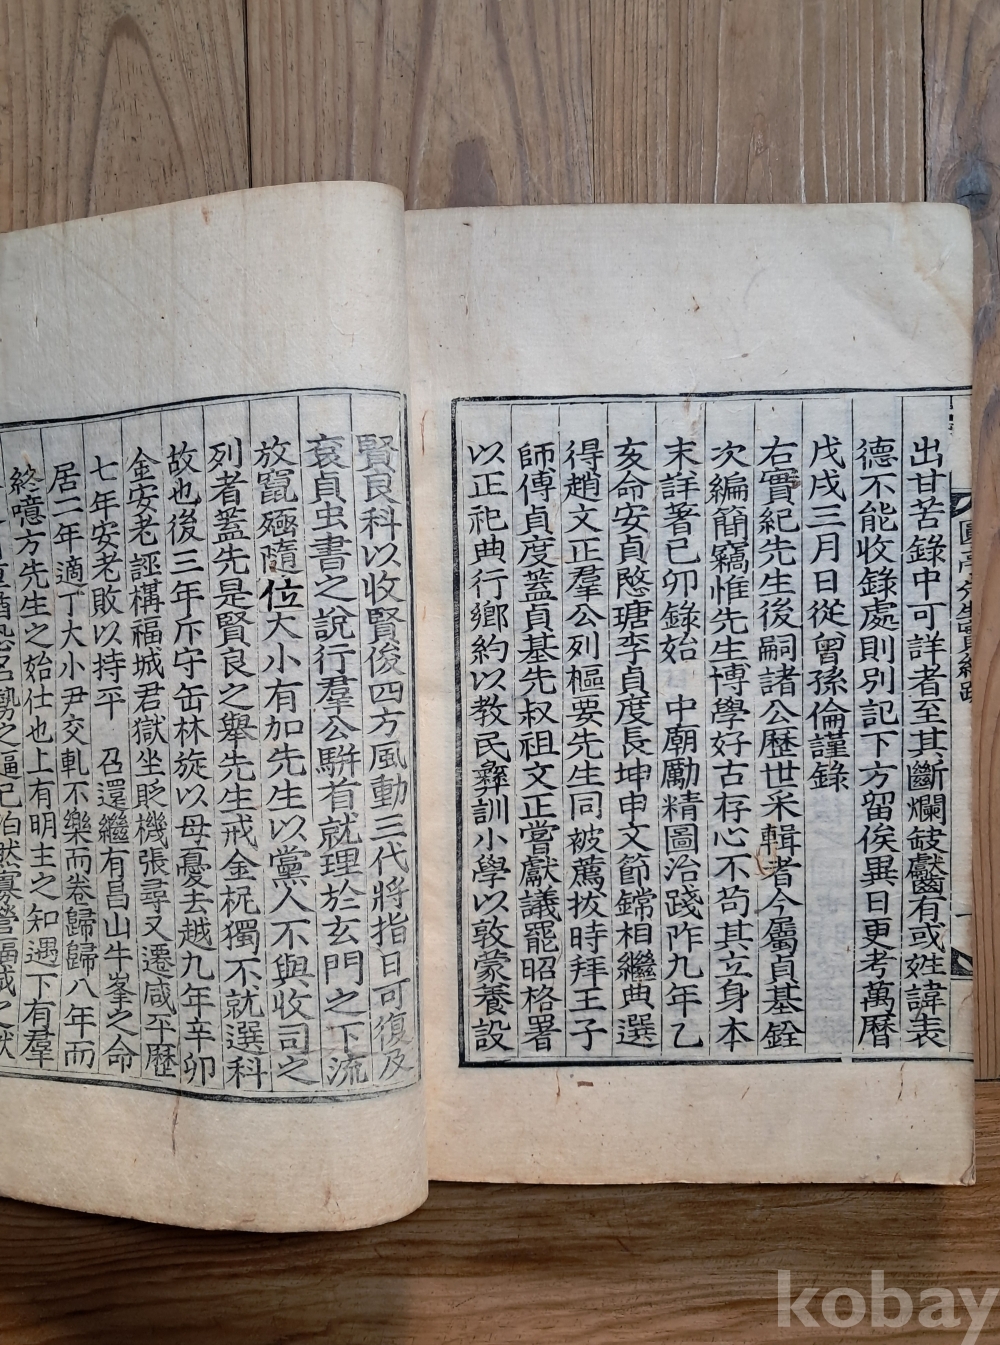 出甘苦錄中可詳者至其斷爛缺齾有或姓諱表
德不能收錄處則別記下方留俟異日更考萬曆
戊戌三月日從曾孫倫謹錄
右實紀先生後嗣諸公歷世采輯者今屬貞基銓
次編簡竊惟先生博學好古存心不苟其立身本
末詳著己卯錄始 中廟勵精圖治踐阼九年乙
亥命安貞愍瑭李貞度長坤申文節鏛相繼典選
得趙文正羣公列樞要先生同被薦拔時拜王子
師傅貞度蓋貞基先叔祖文正嘗獻議罷昭格署
以正祀典行鄉約以教民彝訓小學以敦蒙養設
賢良科以收賢俊四方風動三代將指日可復及
袞貞虫書之說行羣公騈首就理於玄門之下流
放竄殛隨位大小有加先生以黨人不與收司之
列者蓋先是賢良之舉先生戒金杞獨不就選科
故也後三年斥守缶林旋以母憂去越九年辛卯
金安老誣構福城君獄坐貶機張尋又遷咸平歷
七年安老敗以持平 召還繼有昌山牛峯之命
居二年適丁大小尹交軋不樂而卷歸歸八年而
終噫方先生之始仕也上有明主之知遇下有羣
kobay